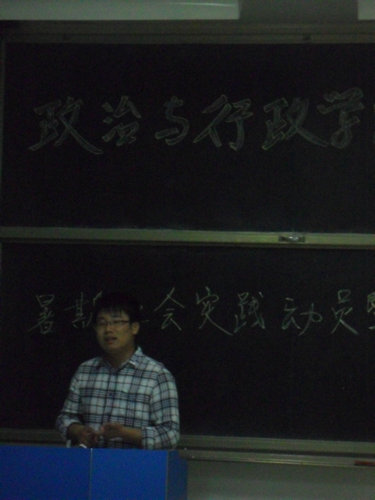 政治与行政学
暑期社会实践动员暨